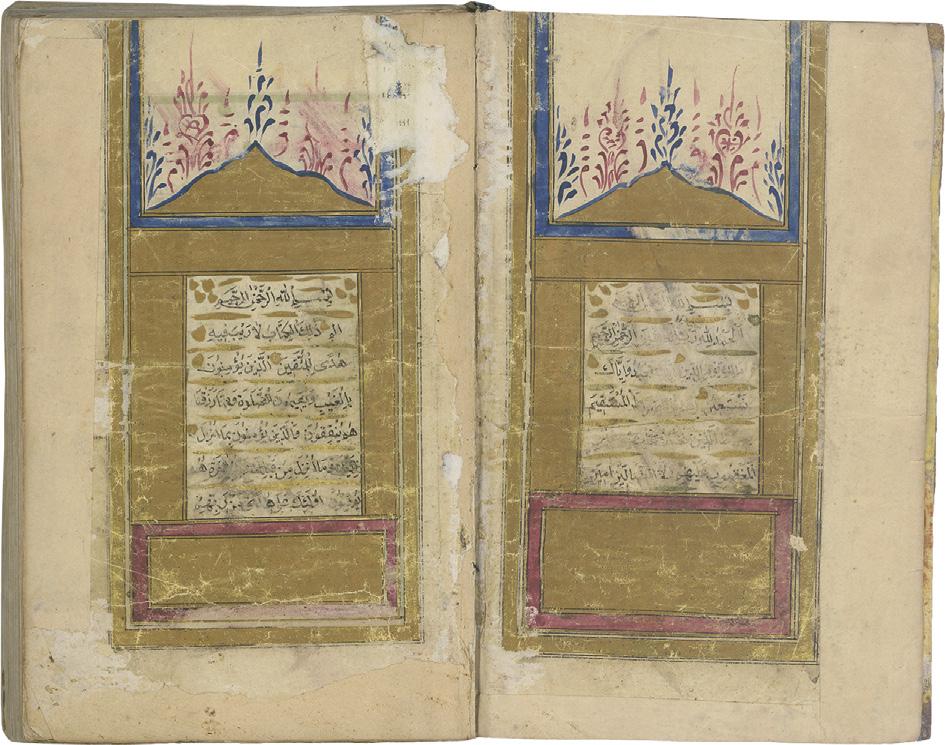 بسم الله الرحمن الرحيم
الحمد لله رب العالمين الرحمن الرحيم
مالك يوم الدين واياك
نستعين المستقيم
الذين
المغضوب عليهم ولا الضالين امين
بسم الله الرحمن الرحيم
الم ذلك الكتاب لا ريب فيه
هدى للمتقين الذين يؤمنون
بالغيب ويقيمون الصلوة ومما رزقنا
هم ينفقون والذين يؤمنون بما انزل
اليك وما انزل من قبلك وبالاخرة هم
يوقنون اولئك على هدى من ربهم